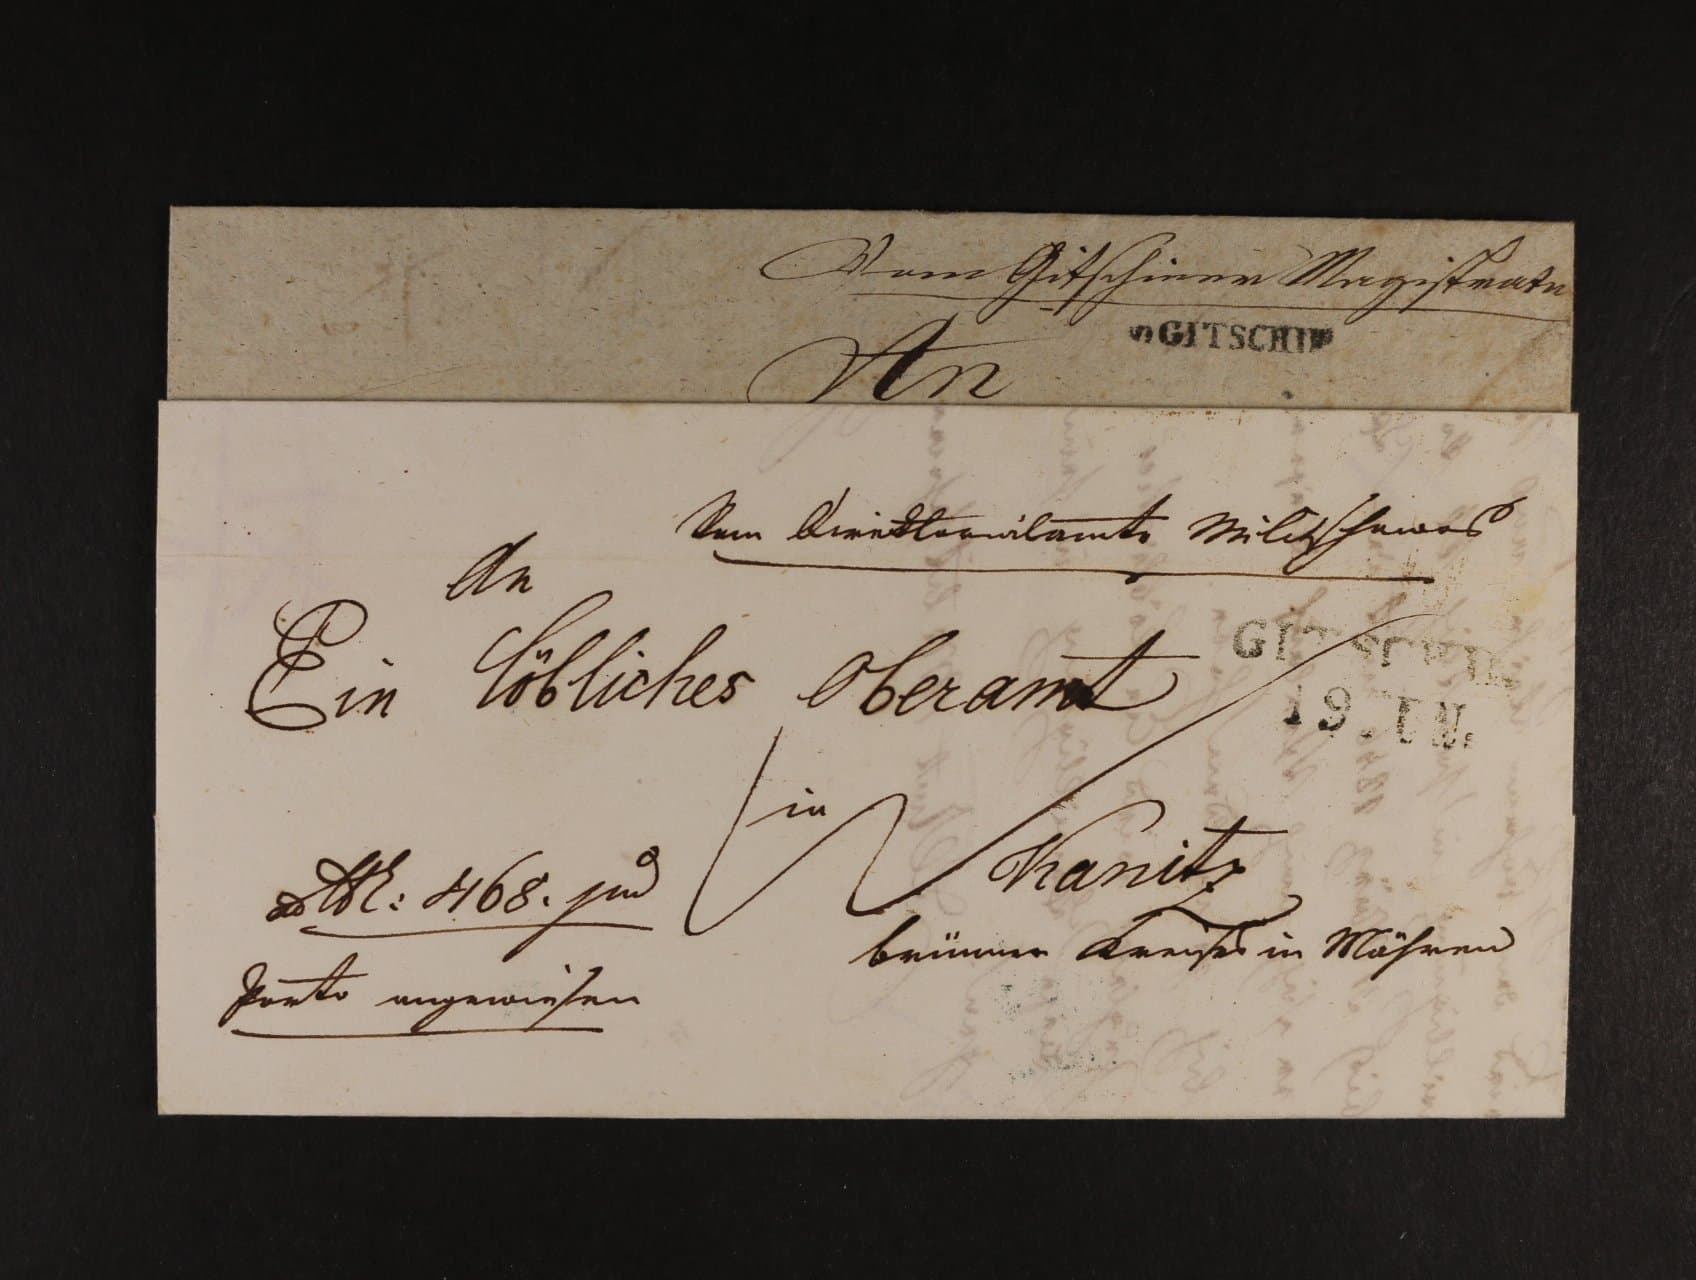 Vom Gitschiner Magistrate
GITSCHIN
An
Vom Direktorialamte Militschowes
An
Ein löbliches Oberamt
GITSCHIN
19 JUN.
in
Kanitz
468. jud
brünner Kreises in Mähren
Porto angewiesen